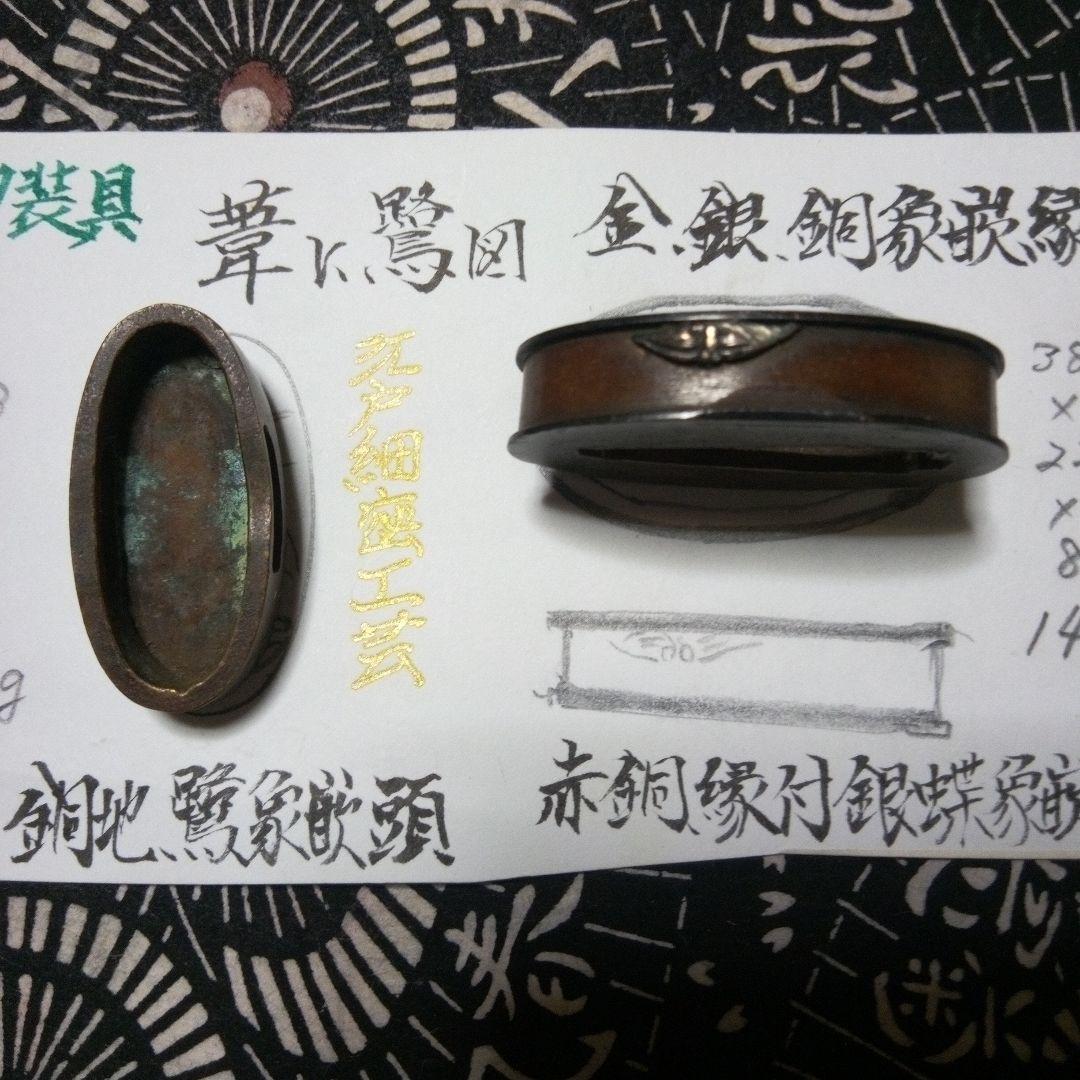 装具
葦に鷺図
金.銀.銅象嵌縁
江戸細密工芸
38
x
2
x
8
14
g
銅地鷺象嵌頭
赤銅縁付銀蝶象嵌